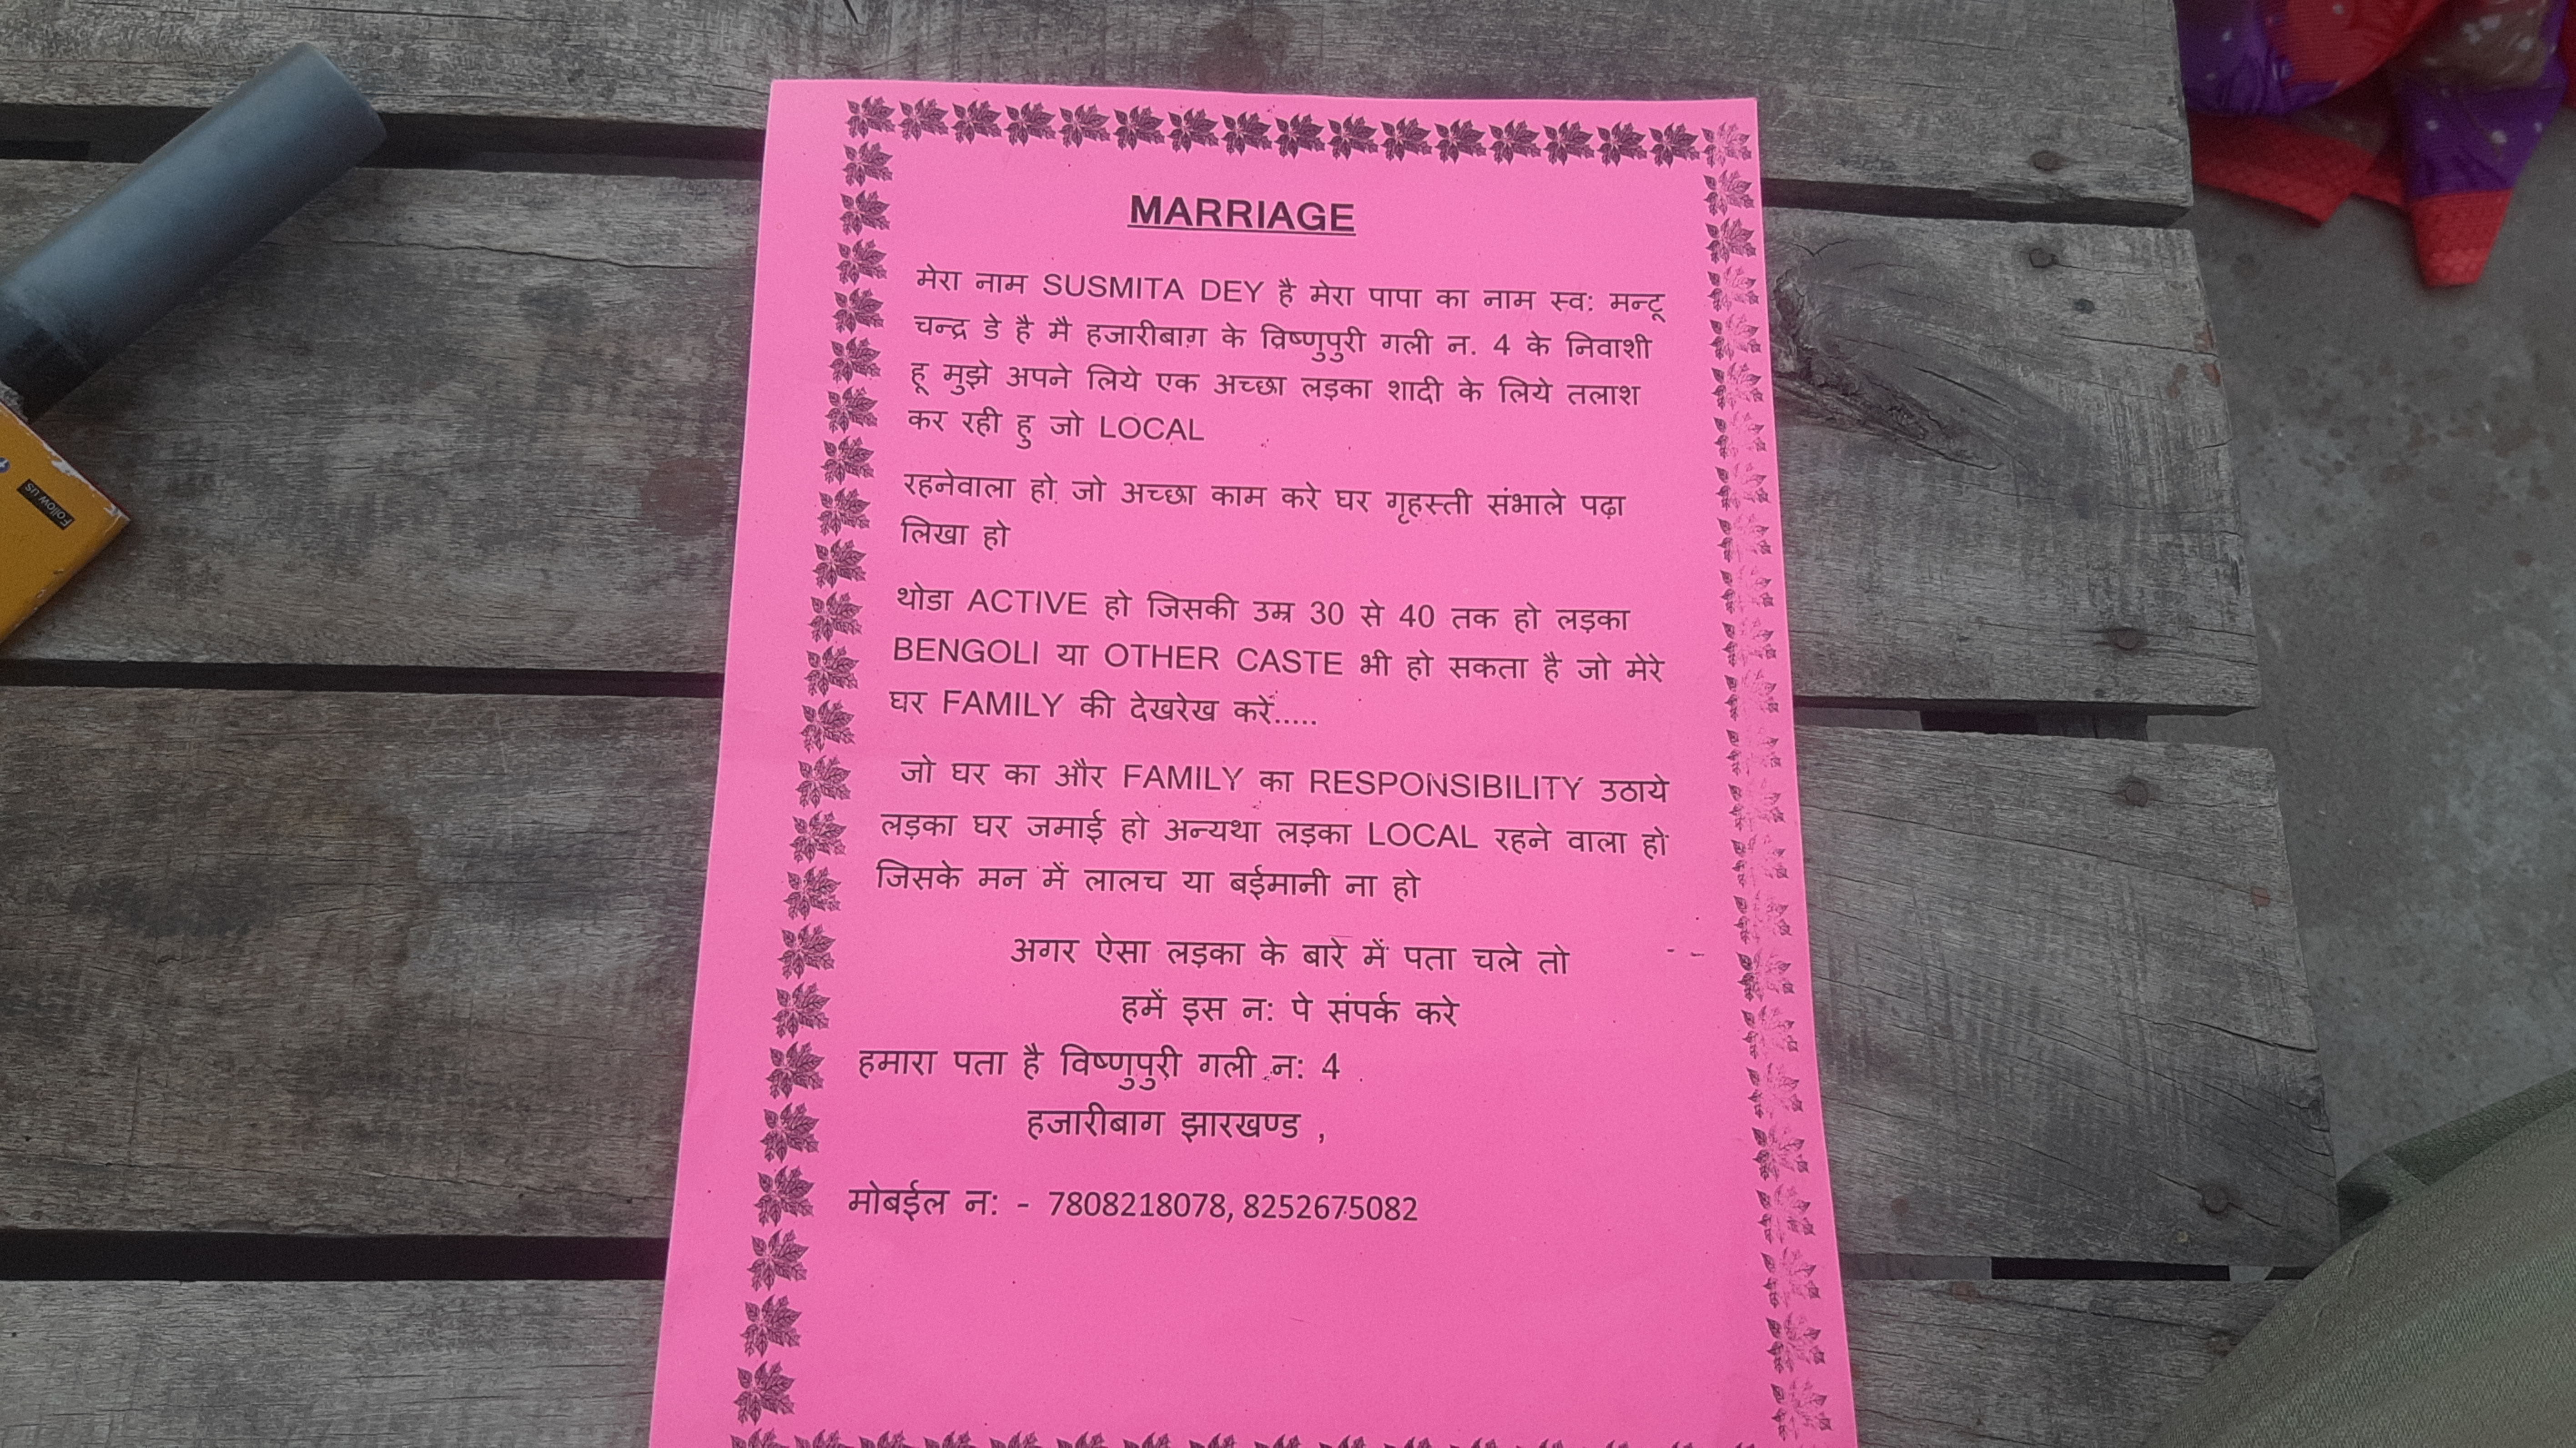 MARRIAGE
मेरा नाम SUSMITA DEY है मेरा पापा का नाम स्व: मन्टू
चन्द्र डे है मै हजारीबाग़ के विष्णुपुरी गली न. 4 के निवाशी
हू मुझे अपने लिये एक अच्छा लड़का शादी के लिये तलाश
कर रही हु जो LOCAL
रहनेवाला हो जो अच्छा काम करे घर गृहस्ती संभाले पढ़ा
लिखा हो
थोडा ACTIVE हो जिसकी उम्र 30 से 40 तक हो लड़का
BENGOLI या OTHER CASTE भी हो सकता है जो मेरे
घर FAMILY की देखरेख करें.....
जो घर का और FAMILY का RESPONSIBILITY उठाये
लड़का घर जमाई हो अन्यथा लड़का LOCAL रहने वाला हो
जिसके मन में लालच या बईमानी ना हो
अगर ऐसा लड़का के बारे में पता चले तो
हमें इस न: पे संपर्क करे
हमारा पता है विष्णुपुरी गली न: 4
हजारीबाग झारखण्ड ,
मोबईल न: - 7808218078, 8252675082
Follow us